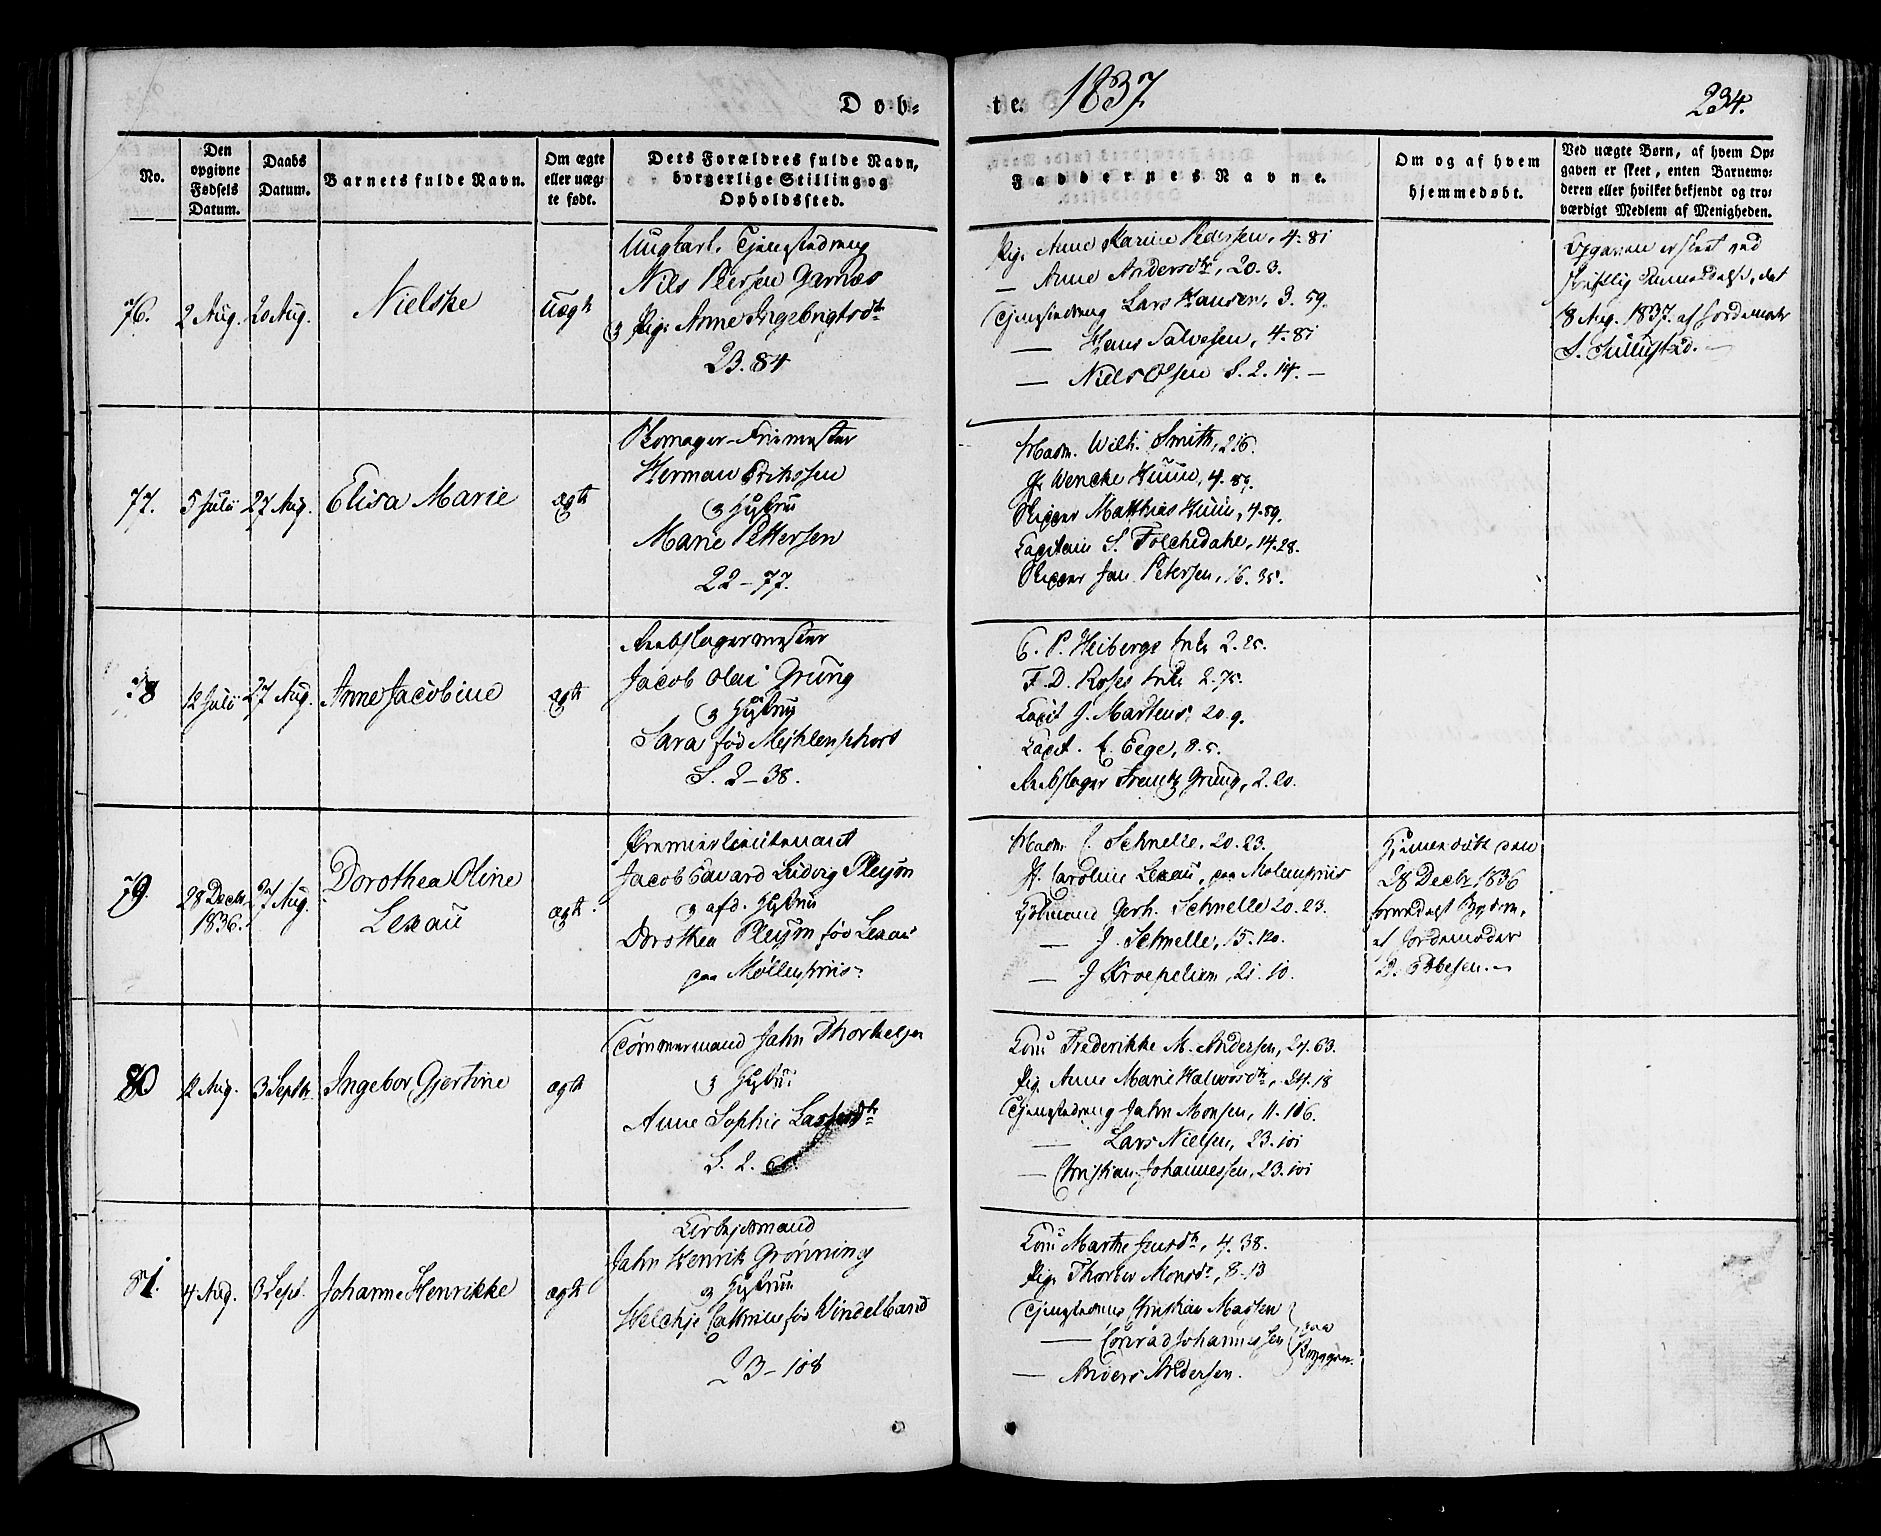 Døb-
te. 1837
234.
No.
Den opgivne Fødsels Datum.
Daabs Datum.
Barnets fulde Navn.
Om ægte eller uæg- te født.
Dets Forældres fulde Navn, borgerlige Stilling og Opholdssted.
Faddernes Navne.
Om og af hvem hjemmedøbt.
Ved uægte Børn, af hvem Op- gaven er skeet, enten Barnemo- deren eller hvilket bekjendt og tro- værdigt Medlem af Menigheden.
76. 2 Aug. 20 Aug. Nielske Uægte
Ungkarl, Tjenestedreng
Nils Peersen Garnæs
og Pig: Anne Ingebrigtsdtr
23. 84
Pig. Anne Karine Pedersen, 4. 81
— Anne Andersdtr, 20. 3.
Tjenestedreng Lars Hansen, 3. 59.
— Hans Salvesen, 4. 81
— Niels Olsen S. 2. 14. —
Opgaven er skeet ved
skriftlig Anmeldelse, dat
8 Aug. 1837. af Jordemoder
S. Sullustad. —
77. 5 Juli 27 Aug. Elisa Marie ægte
Skomager-Friemester
Herman Erikssen
og Hustru
Marie Pettersen
22 – 77.
Mad. Wilh. Smith, 2.
Wencke Huun, 4. 89.
Skipper Matthias Huun, 4. 89.
Capitain S. Folchedahl, 14. 28.
Skipper Jan Petersen, 16. 35.
78 12 Juli 27 Aug. Anne Jacobine ægte
Reebslagermester
Jacob Olai Grung
og Hustru
Sara fød Mejhlenphort
S. 2 – 38.
C. P. Heibergs Enke 2. 25.
F. D. Roses Enke 2. 75.
Capit J. Martens 20. 9.
Capt. E. Eege, 8. 5.
Reebslager Frantz Grung, 2. 20.
79. 28 Decbr 1836. 27 Aug. Dorothea Oline
Lexau ægte.
Premierlieutenant
Jacob Edvard Ludvig Pleym
og afd. Hustru
Dorothea Pleym fød Lexau
paa Møllenpriis.
Mad. C. Schnelle, 20. 23.
Jf. Caroline Lexau, paa Møllenpriis
Kjøbmand Gerh. Schnelle 20. 23.
— J. Schnelle, 15. 120.
— J Kroepeliem, 21. 10.
Hjemmedøbt den
28 Decbr 1836
af Jordemoder
D. Ebbesen. —
80 12 Aug. 3 Septbr. Ingebor Gjertine ægte
Tømmermand Jahn Thorkelsen
og Hustru
Anne Sophie Lassesdtr
S. 2.
Konе Frederikke M. Andersen, 24. 63.
Pig. Anne Marie Halworsdtr, 24. 18
Tjenestedreng Jahn Monsen, 11. 106.
— Lars Nielsen, 23. 101
— Christian Johannessen, 23. 101
81. 4 Aug. 3 Sept. Johanne Henrikke ægte
Arbejdsmand
Jahn Henrik Grønning
og Hustru
Welchje Cathrine fød Windelband
23 – 108
Kone Marthe Jensdtr, 4. 38.
Pig. Thorber Monsdtr, 8. 13
Tjenestedreng Christian Madsen
— Conrad Johannessen
— Anders Andersen.
paa Bryggen.